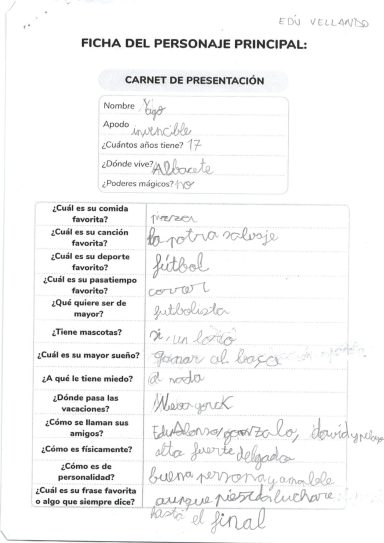 EDU VELLANDO
FICHA DEL PERSONAJE PRINCIPAL:
CARNET DE PRESENTACIÓN
Nombre Yigo
Apodo invencible
¿Cuántos años tiene? 17
¿Dónde vive? Albacete
¿Poderes mágicos? no
¿Cuál es su comida favorita? pizza
¿Cuál es su canción favorita? la potra salvaje
¿Cuál es su deporte favorito? fútbol
¿Cuál es su pasatiempo favorito? correr
¿Qué quiere ser de mayor? futbolista
¿Tiene mascotas? si, un loro
¿Cuál es su mayor sueño? ganar al barça
¿A qué le tiene miedo? a nada
¿Dónde pasa las vacaciones? Nueva yorck
¿Cómo se llaman sus amigos? Edu Alonso, gonzalo, david y pelayo
¿Cómo es físicamente? alto fuerte delgado
¿Cómo es de personalidad? buena persona y amable
¿Cuál es su frase favorita o algo que siempre dice? aunque pierda luchare
hasta el final